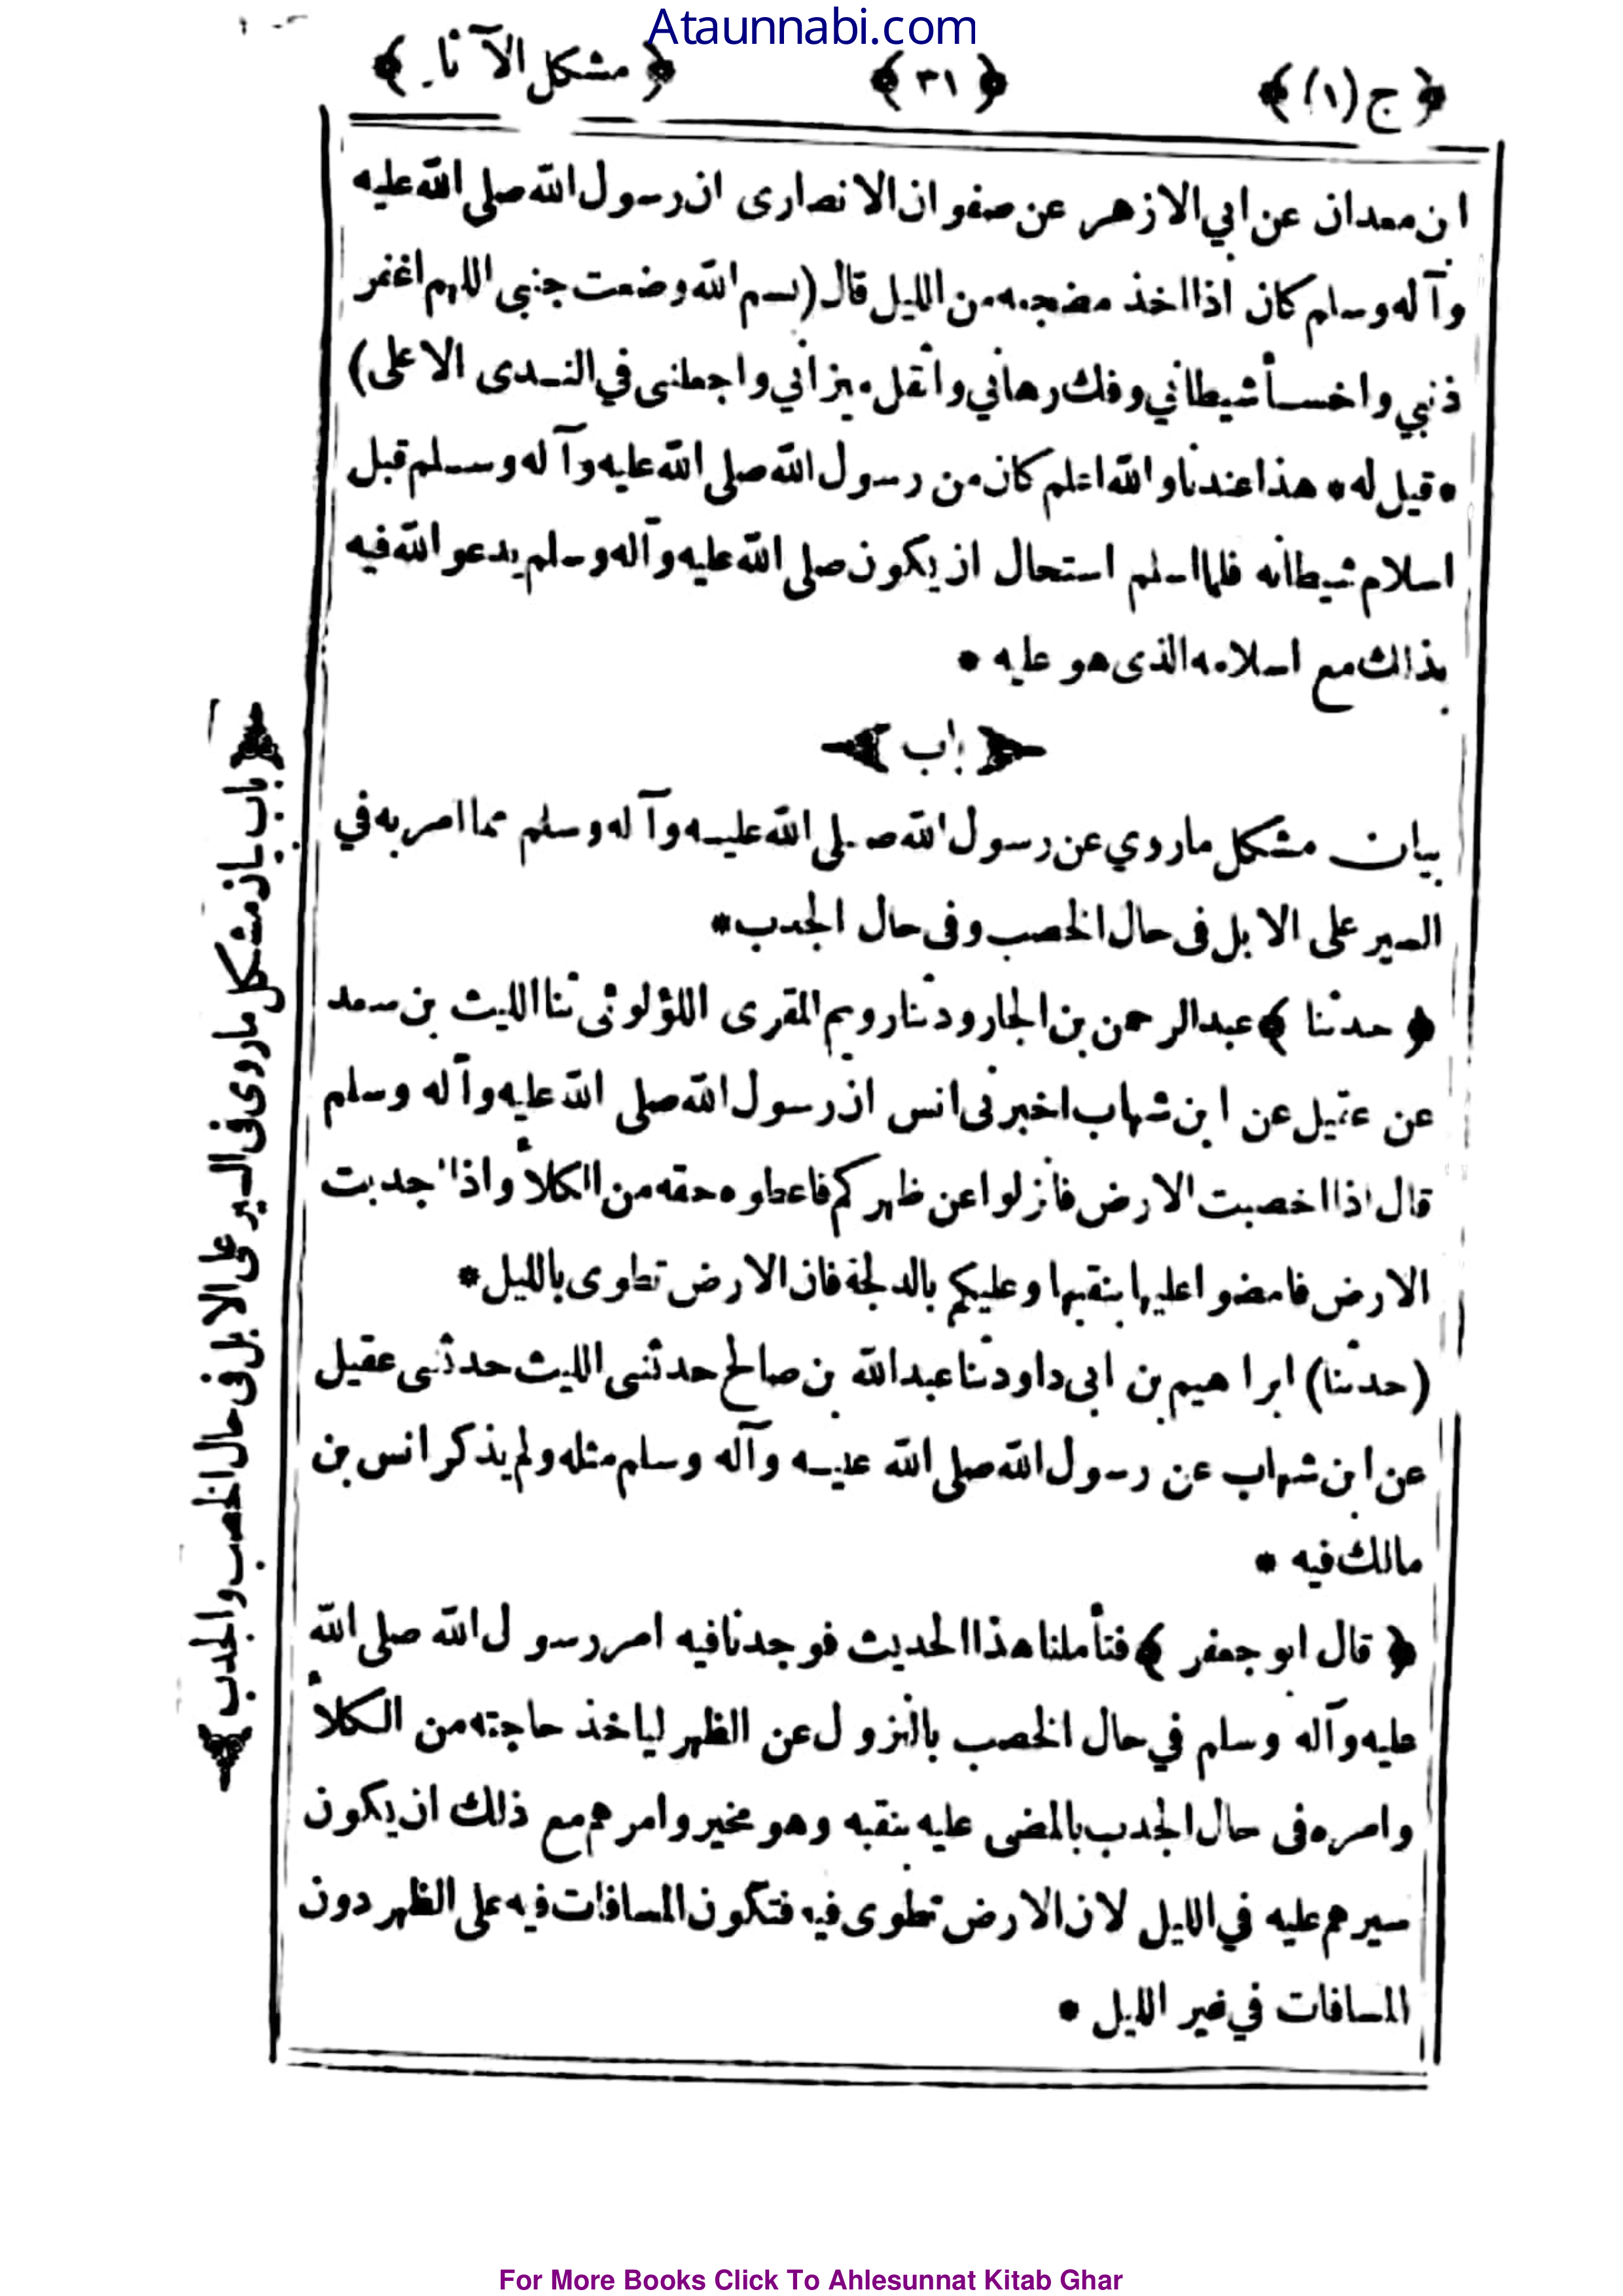 Ataunnabi.com
﴿ ج (١) ﴾ ﴿ ٣١ ﴾ ﴿ مشكل الآثار ﴾
ابن معدان عن ابي الازهر عن صفوان الانصارى ان رسول الله صلى الله عليه
وآله وسلم كان اذا اخذ مضجعه من الليل قال (بسم الله وضعت جنبى اللهم اغفر
ذنبي واخسأ شيطاني وفك رهاني واثقل ميزاني واجعلنى في الندى الاعلى)
* قيل له * هذا عندنا والله اعلم كان من رسول الله صلى الله عليه وآله وسلم قبل
اسلام شيطانه فلما اسلم استحال ان يكون صلى الله عليه وآله وسلم يدعو الله فيه
بذلك مع اسلامه الذى هو عليه *
﴿ باب ﴾
بيان مشكل ماروي عن رسول الله صلى الله عليه وآله وسلم مما امر به في
السير على الابل فى حال الخصب وفى حال الجدب *
﴿ حدثنا ﴾ عبدالرحمن بن الجارود ثنا رويم المقرى اللؤلوئى ثنا الليث بن سعد
عن عقيل عن ابن شهاب اخبرنى انس ان رسول الله صلى الله عليه وآله وسلم
قال اذا اخصبت الارض فانزلوا عن ظهركم فاعطوه حقه من الكلأ واذا اجدبت
الارض فامضوا عليها بنقبها وعليكم بالدلجة فان الارض تطوى بالليل *
(حدثنا) ابراهيم بن ابى داود ثنا عبدالله بن صالح حدثنى الليث حدثنى عقيل
عن ابن شهاب عن رسول الله صلى الله عليه وآله وسلم مثله ولم يذكر انس بن
مالك فيه *
﴿ قال ابو جعفر ﴾ فتأملنا هذا الحديث فوجدنا فيه امر رسول الله صلى الله
عليه وآله وسلم في حال الخصب بالنزول عن الظهر لياخذ حاجته من الكلأ
وامره فى حال الجدب بالمضى عليه بنقبه وهو مخير وامرهم مع ذلك ان يكون
سيرهم عليه في الليل لان الارض تطوى فيه فتكون المسافات فيه على الظهر دون
المسافات في غير الليل *
﴿ باب بيان مشكل ماروى فى السير على الابل فى حال الخصب والجدب ﴾
For More Books Click To Ahlesunnat Kitab Ghar